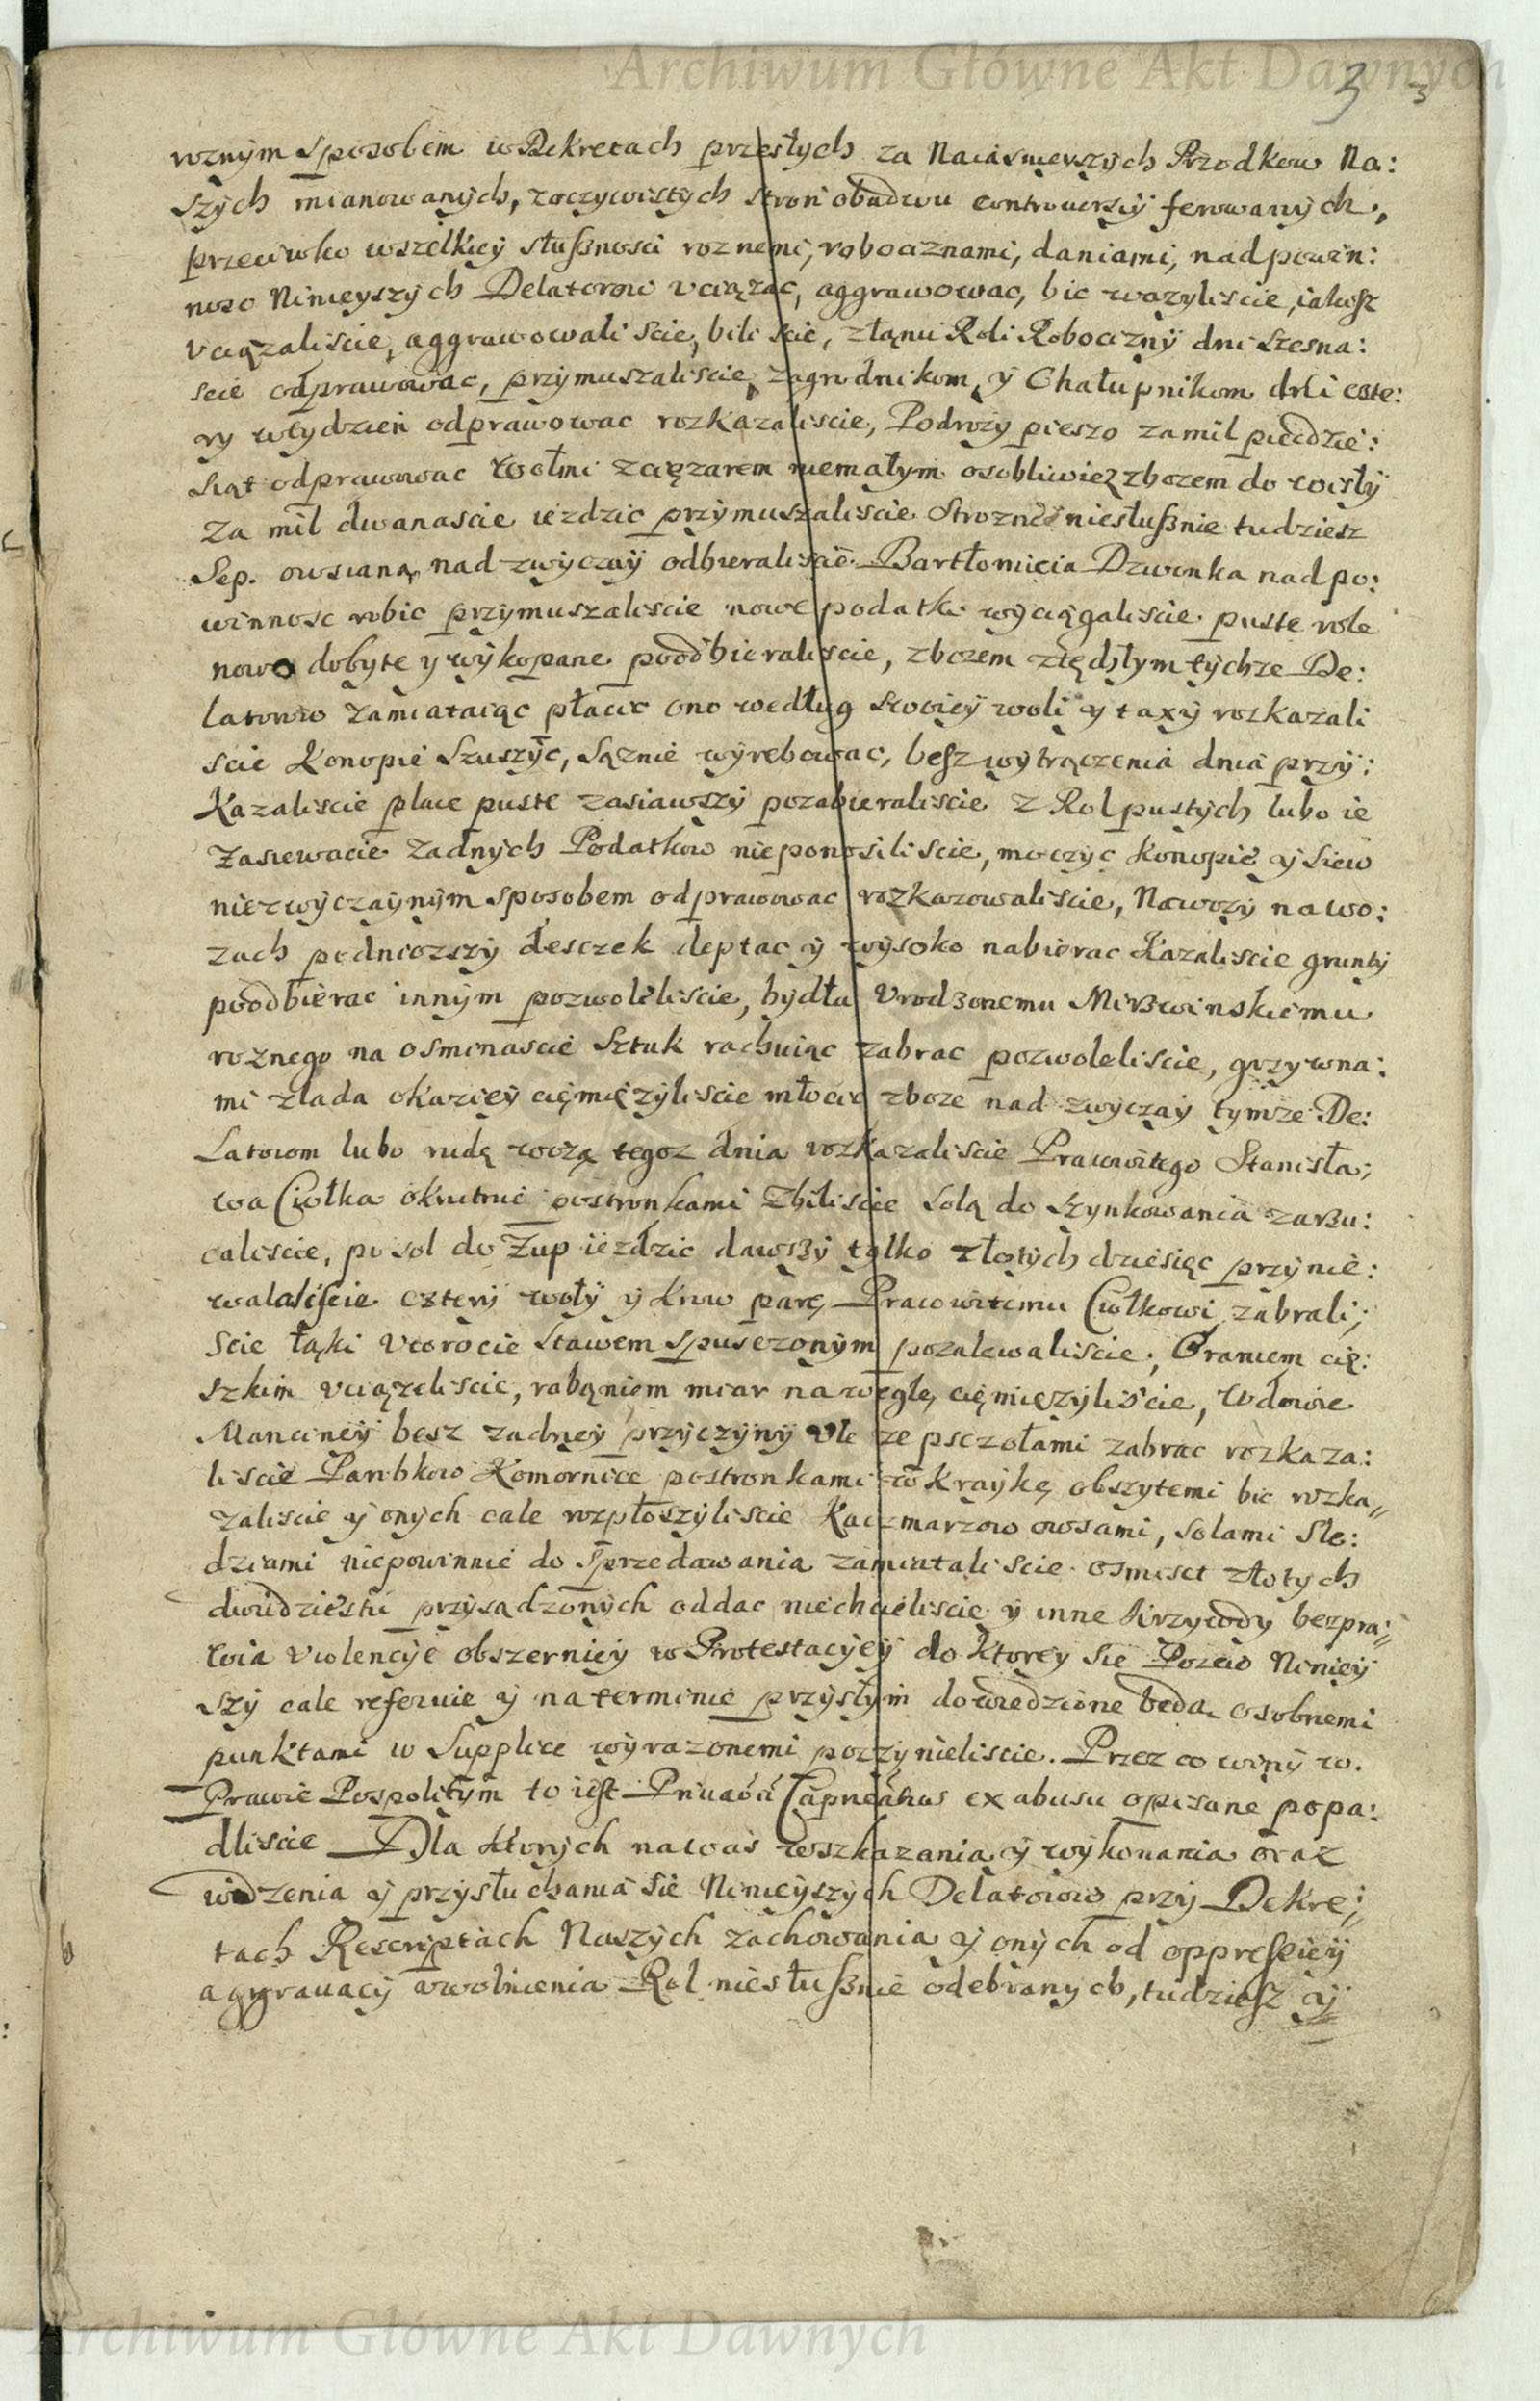 Archiwum Główne Akt Dawnych
3 3
roznym sposobem w Dekretach przesłych za Naiasnieyszych Przodkow Na:
szych mianowanych, zoczywistych stron obudwu controuersiy ferowanych,
przeciwko wszelkiey słusznosci roznemi, robociznami, daniami, nad powin:
nosc Ninieyszych Delatorow vciązac, aggrawowac, bic wazyliscie, iakosz
vciązaliscie, aggrawowali scie, bili scie, złanu Roli Robocizny dni szesna:
scie odprawowac, przymuszaliscie, zagrodnikom, y Chałupnikom dni czte:
ry wtydzien odprawowac rozkazaliscie, Podrozy pieszo za mil piecdzie:
siąt odprawowac Wołmi zcięzarem niemałym osobliwie zbozem do wisły
za mil dwanascie iezdzic przymuszaliscie Strozne niesłusznie tudziesz
Sep. owsianą nad zwyczay odbieraliscie. Bartłomieia Dzwonka nad po:
winnosc robic przymuszaliscie nowe podatki wyciągaliscie. puste role
nowo dobyte y wykopane poodbieraliscie, zbozem ztęchłym tychze De:
latorow zamiataiąc płacic ono według swoiey woli y taxy rozkazali
scie Konopie Szuszyc, Sąznie wyrębowac, besz wytrączenia dnia przy:
Kazaliscie place puste zasiawszy pozabieraliscie z Rol pustych lubo ie
zasiewacie zadnych Podatkow nieponosiliscie, moczyc Konopie y siew
niezwyczaynym sposobem odprawowac rozkazowaliscie, Nawozy na wo:
zach podniozszy desczek deptac y wysoko nabierac Kazaliscie grunty
poodbierac innym pozwoliliscie, bydła Vrodzonemu Mirzwinskiemu
roznego na osmnascie Sztuk rachuiąc zabrac pozwoleliscie, grzywna:
mi zlada okaziey cięmięzyliscie młocic zboze nad zwyczay tymze De:
Latorom lubo rudę wozą tegoz dnia rozkazaliscie Pracowitego Stanisła;
wa Ciołka okrutnie postronkami zbiliscie Solą do Szynkowania zarzu:
caliscie, po sol do Zup iezdzic dawszy tylko złotych dziesięc przynie:
walaliscie cztery woły y krow parę Pracowitemu Ciołkowi zabrali;
scie łąki Vtorocie Stawem spusczonym pozalewaliscie, Oraniem cię:
szkim vciązeliscie, rabaniem miar na węgle, cięmięzyliscie, Wdowie
Manciney besz zadney przyczyny Vle ze psczołami zabrac rozkaza:
liscie Parobkow Komornice postronkami w kraykę obszytemi bic rozka„
zaliscie y onych cale rozpłoszyliscie Kaczmarzow owsami, Solami Sle:
dziami niepowinnie do Sprzedawania zamiataliscie osmset złotych
dwudziestu przysądzonych oddac niechcieliscie y inne Krzywdy bezpra„
wia violencye obszerniey w Protestacyey do ktorey sie Pozew Niniey
szy cale referuie y na terminie przyszłym dowiedzione beda osobnemi
punktami w Supplice wyrazonemi poczynieliscie. Przez co winy w.
Prawie Pospolitym to iest ex abusu opisane popa:
dliscie Dla ktorych na was wszkazania y wykonania oraz
widzenia y przysłuchania sie Ninieyszych Delatorow przy Dekre;
tach Rescriptach Naszych zachowania y onych od oppressiey
aggrauacy vwolnienia Rol niesłusznie odebranych, tudziesz y
Archiwum Główne Akt Dawnych